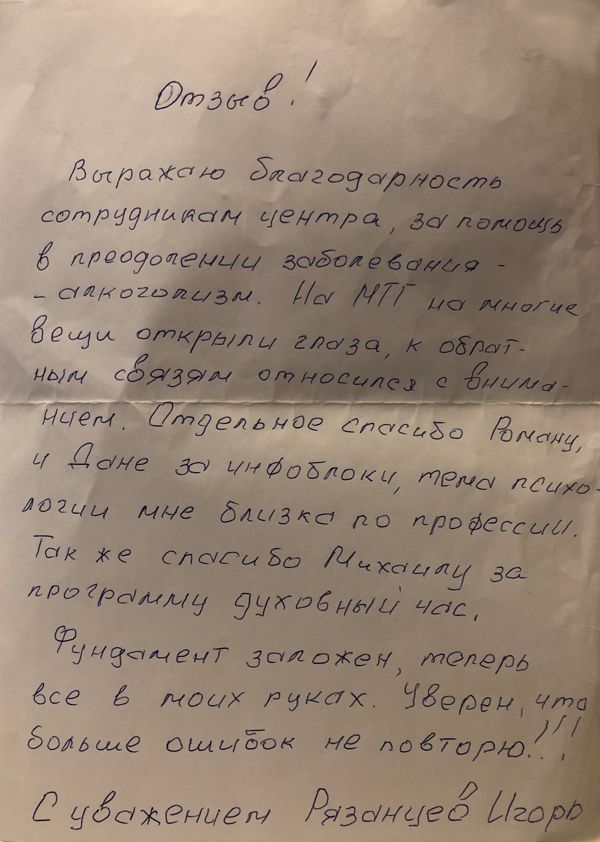 Отзыв!
Выражаю благодарность
сотрудникам центра, за помощь
в преодолении заболевания -
- алкоголизм. На МТГ на многие
вещи открыли глаза, к обрат-
ным связям относился с внима-
нием. Отдельное спасибо Роману,
и Дане за инфоблоки, тема психо-
логии мне близка по профессии.
Так же спасибо Михаилу за
программу духовный час.
Фундамент заложен, теперь
все в моих руках. Уверен, что
больше ошибок не повторю!!!
С уважением Рязанцев Игорь